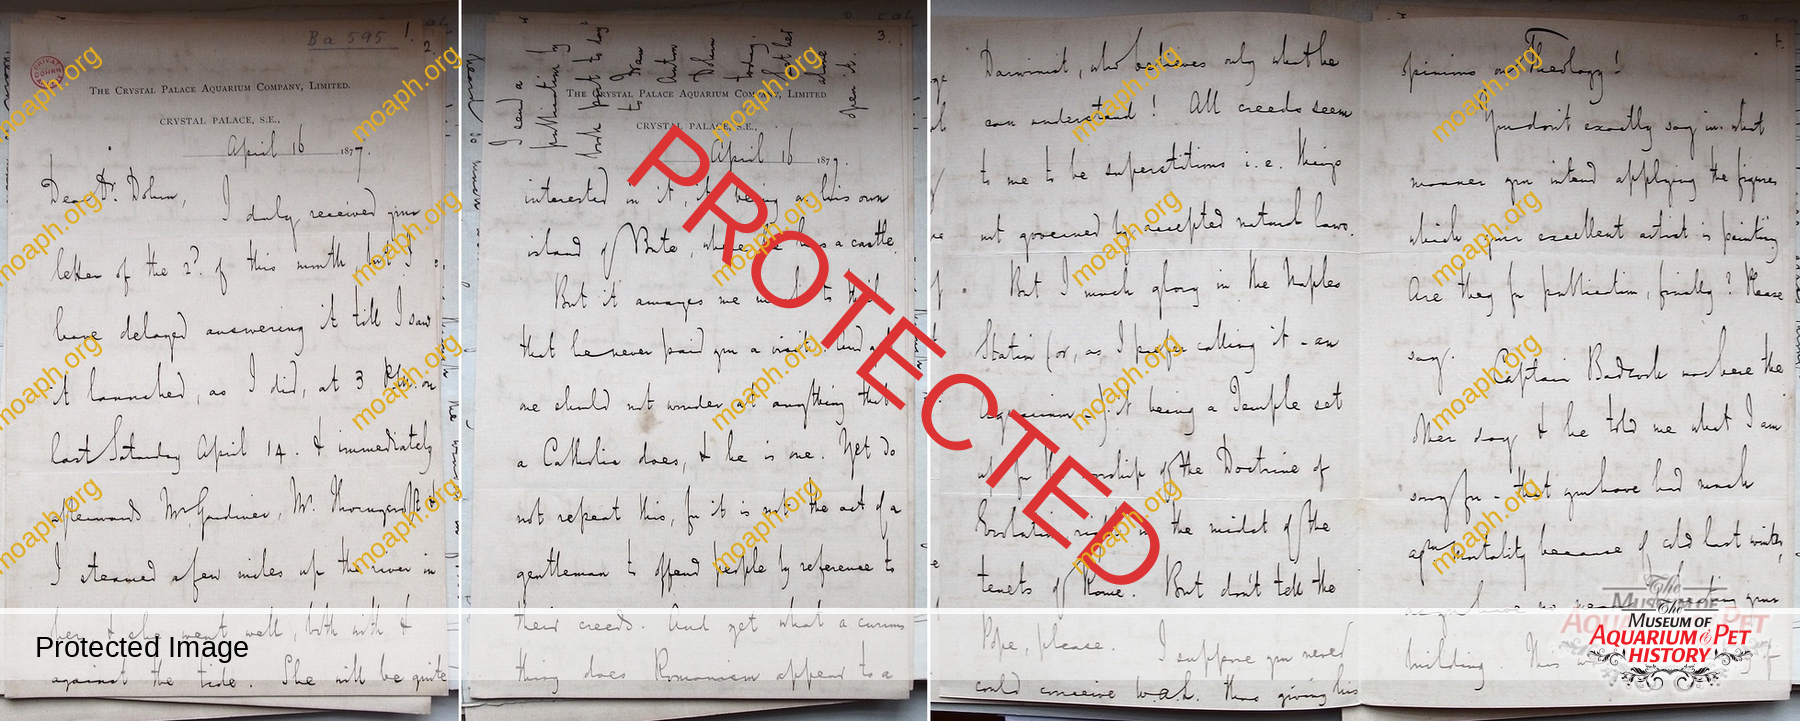 Ba 595
1.
2.
THE CRYSTAL PALACE AQUARIUM COMPANY, LIMITED.
CRYSTAL PALACE, S.E.,
April 16 1877.
Dear Dr. Dohrn, I duly received your
letter of the 2d. of this month but I
have delayed answering it till I saw
it launched, as I did, at 3 P.M. on
last Saturday April 14. & immediately
afterwards Mr. Gardiner, Mr. Thornycroft &
I steamed a few miles up the river in
her & she went well, both with &
against the tide. She will be quite
3.
I send a
publication by
book post to day
Anton
Dohrn
today.
open it.
THE CRYSTAL PALACE AQUARIUM COMPANY, LIMITED
CRYSTAL PALACE, S.E.,
April 16 1877.
interested in it, it being on his own
island of Bute, where he has a castle.
But it amazes me
that he never paid you a visit. And
one should not wonder at anything that
a Catholic does, & he is one. Yet do
not repeat this, for it is not the act of a
gentleman to offend people by reference to
their creeds. And yet what a curious
thing does Romanism appear to a
Darwinist, who believes only what he
can understand! All creeds seem
to me to be superstitions i.e. things
not governed by accepted natural laws.
But I much glory in the Naples
Station (or, as I prefer calling it - an
Aquarium -) it being a Temple set
up for the worship of the Doctrine of
Evolution right in the midst of the
tenets of Rome. But don't tell the
Pope, please. I suppose you never
could conceive W.A.L. thus giving his
opinions on Theology!
You don't exactly say in what
manner you intend applying the figures
which your excellent artist is painting.
Are they for publication, finally? Please
say. Captain Badcock was here the
other day & he told me what I am
sorry for - that you have had much
mortality because of cold last winter,
building. This
PROTECTED
moaph.org
Protected Image
The
MUSEUM OF
AQUARIUM & PET
HISTORY